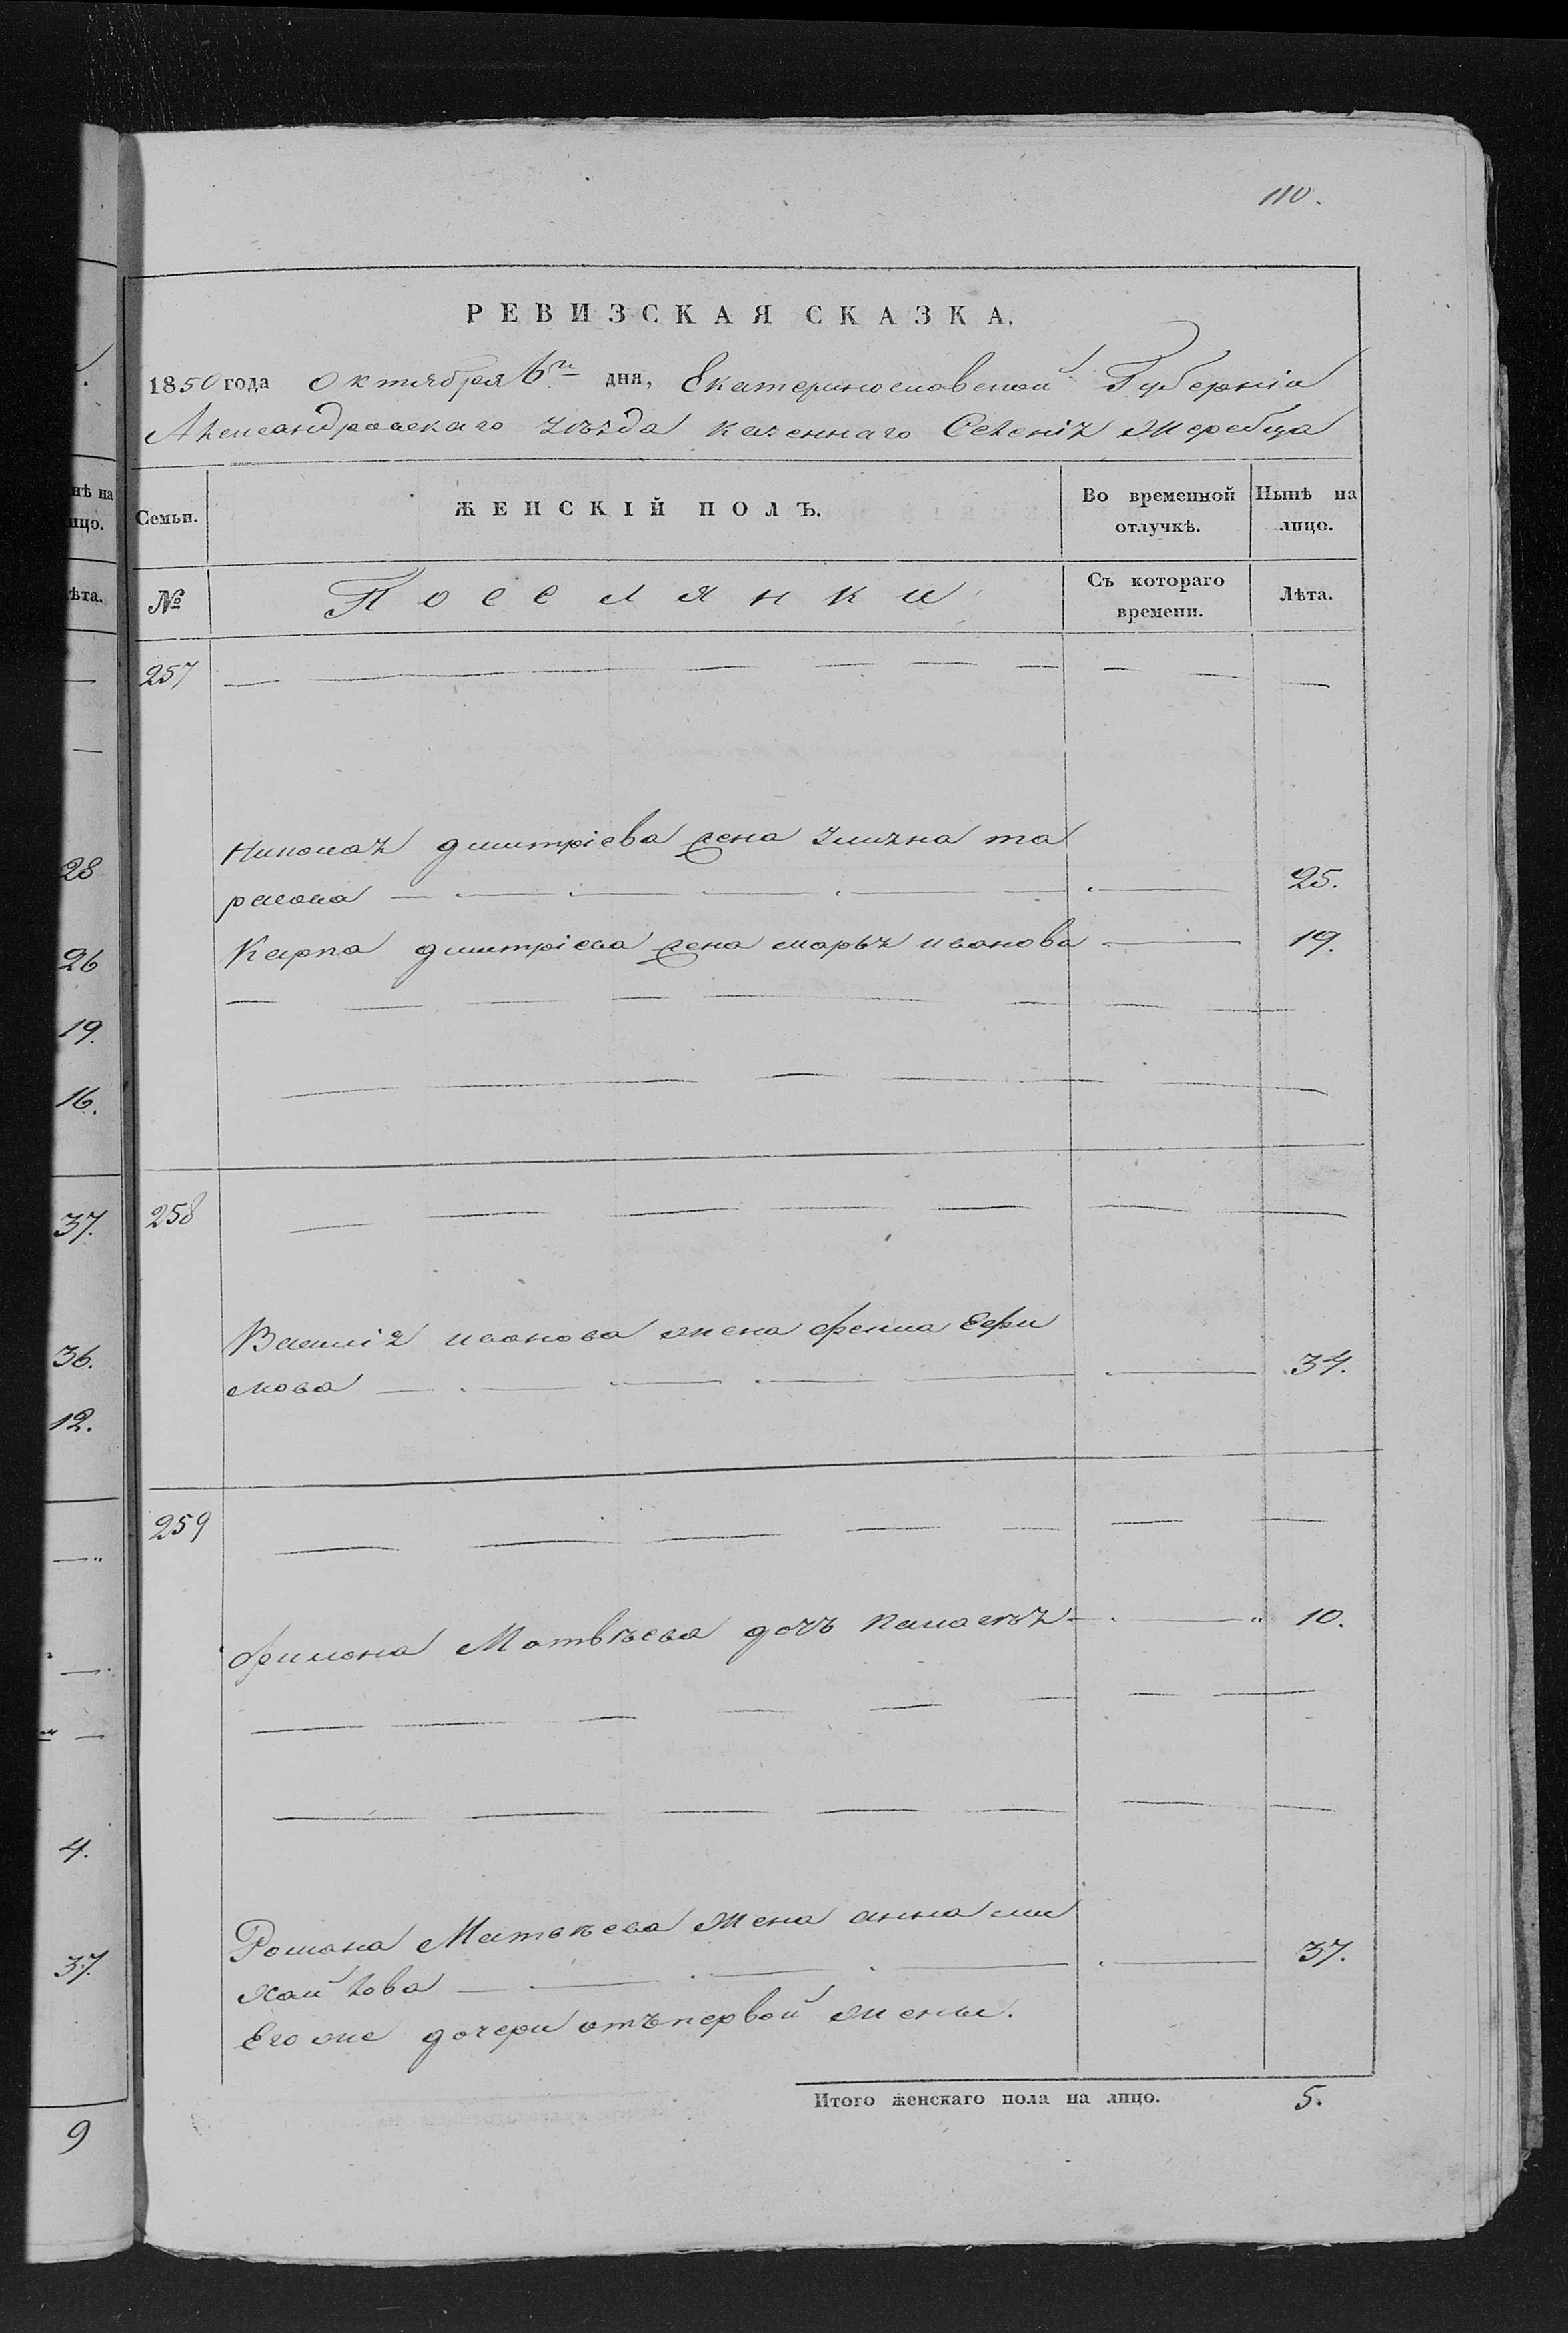 110.
РЕВИЗСКАЯ СКАЗКА.
1850 года Октября 6го дня, Екатеринославской Губерніи
Александровскаго уѣзда казеннаго Селенія Жеребца
Семьи.
ЖЕНСКІЙ ПОЛЪ.
Во временной отлучкѣ.
Нынѣ на лицо.
№
Поселянки
Съ котораго времени.
Лѣта.
257
Николая дмитріева жена улияна та
расова 25.
Карпа дмитріева жена марья иванова 19.
258
Василія иванова жена фекла Ефи
мова 34.
259
Филиона Матвѣева дочь 10.
Романа Матвѣева Жена анна ми
хайлова 37.
Его же дочери отъ первой жены.
Итого женскаго пола на лицо. 5.
нѣ на
ицо.
ѣта.
28
26
19.
16.
37.
36.
12.
4.
37.
9